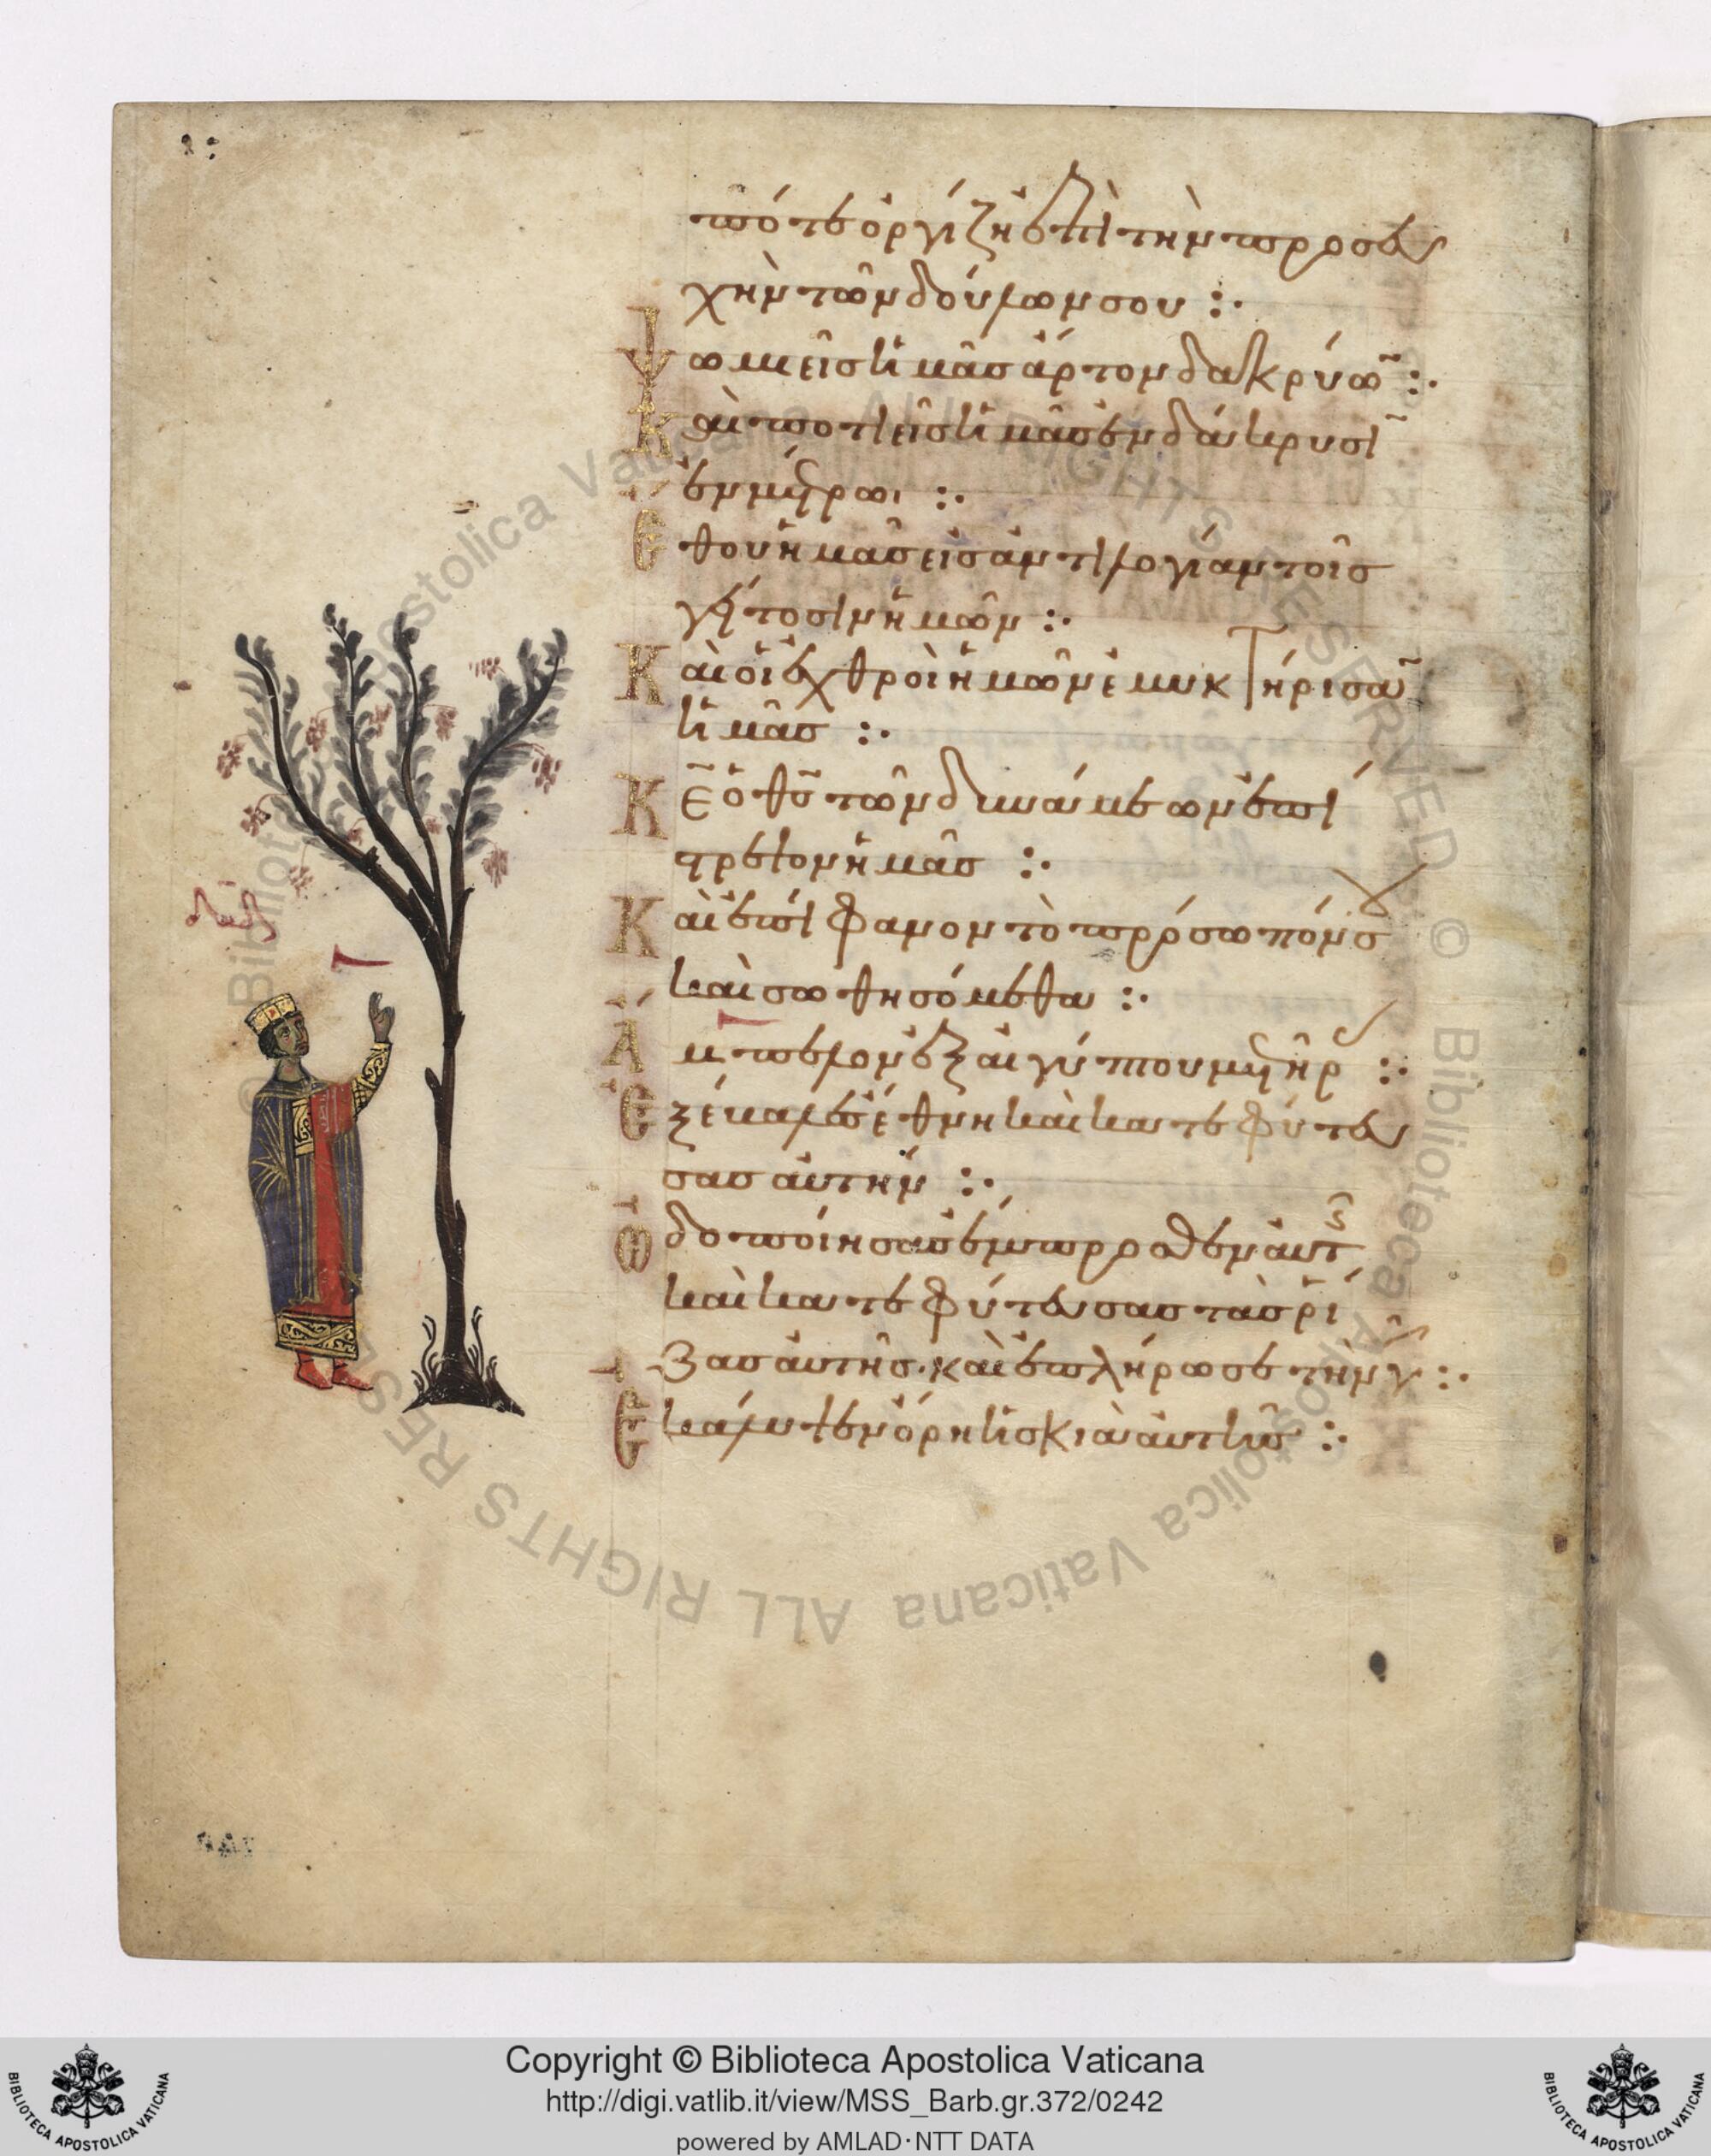 πότε ὀργίζη ἐπὶ τὴν προσευ
χὴν τῶν δούλων σου :·
Ψωμιεῖς ἡμᾶς ἄρτον δακρύω̅ :·
Καὶ ποτιεῖς ἡμᾶς ἐν δάκρυσῑ
ἐν μέτρωι :·
Ἔθου ἡμᾶς εἰς ἀντιλογίαν τοῖς
γείτοσιν ἡμῶν :·
Καὶ οἱ ἐχθροὶ ἡμῶν ἐμυκτήρισα̅
ἡμᾶς :·
Κε̅ ὁ θς̅ τῶν δυνάμεων ἐπί
στρεψον ἡμᾶς :·
Καὶ ἐπίφανον τὸ πρόσωπόν σου
καὶ σωθησόμεθα :·
Ἄμπελον ἐξ αἰγύπτου μετῆρ :·
Ἐξέβαλες ἔθνη καὶ κατεφύτευ
σας αὐτήν :·
Ὡδοποίησας ἔμπροσθεν αὐτ
καὶ κατεφύτευσας τὰς ῥί
ζας αὐτῆς· καὶ ἐπλήρωσε τὴν γῆν :·
Ἐκάλυψεν ὄρη ἡ σκιὰ αὐτῆς :·
δα̅δ
Copyright © Biblioteca Apostolica Vaticana
http://digi.vatlib.it/view/MSS_Barb.gr.372/0242
powered by AMLAD·NTT DATA
BIBLIOTECA APOSTOLICA VATICANA
BIBLIOTECA APOSTOLICA VATICANA
© Biblioteca Apostolica Vaticana ALL RIGHTS RESERVED
© Biblioteca Apostolica Vaticana ALL RIGHTS RESERVED